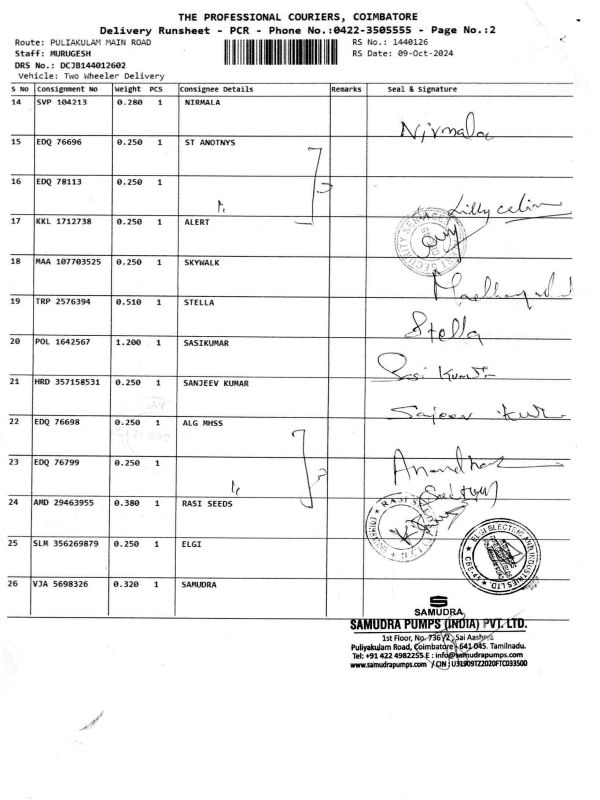 THE PROFESSIONAL COURIERS, COIMBATORE
Delivery Runsheet - PCR - Phone No.:0422-3505555 - Page No.:2
Route: PULIAKULAM MAIN ROAD
RS No.: 1440126
Staff: MURUGESH
RS Date: 09-Oct-2024
DRS No.: DCJB144012602
Vehicle: Two Wheeler Delivery
S No Consignment No Weight PCS Consignee Details Remarks Seal & Signature
14 SVP 104213 0.280 1 NIRMALA
Nirmala
15 EDQ 76696 0.250 1 ST ANOTNYS
16 EDQ 78113 0.250 1
Lilly celin
17 KKL 1712738 0.250 1 ALERT
18 MAA 107703525 0.250 1 SKYWALK
19 TRP 2576394 0.510 1 STELLA
Stella
20 POL 1642567 1.200 1 SASIKUMAR
Sasi Kumar
21 HRD 357158531 0.250 1 SANJEEV KUMAR
Sajeev Kumar
22 EDQ 76698 0.250 1 ALG MHSS
23 EDQ 76799 0.250 1
24 AMD 29463955 0.380 1 RASI SEEDS
25 SLM 356269879 0.250 1 ELGI
ELGI ELECTRIC AND INDUSTRIES LTD.
26 VJA 5698326 0.320 1 SAMUDRA
SAMUDRA
SAMUDRA PUMPS (INDIA) PVT. LTD.
1st Floor, No. 736/2, Sai Aashera
Puliyakulam Road, Coimbatore - 641 045. Tamilnadu.
Tel: +91 422 4982255 E : info@samudrapumps.com
www.samudrapumps.com / CIN : U31909TZ2020FTC033500